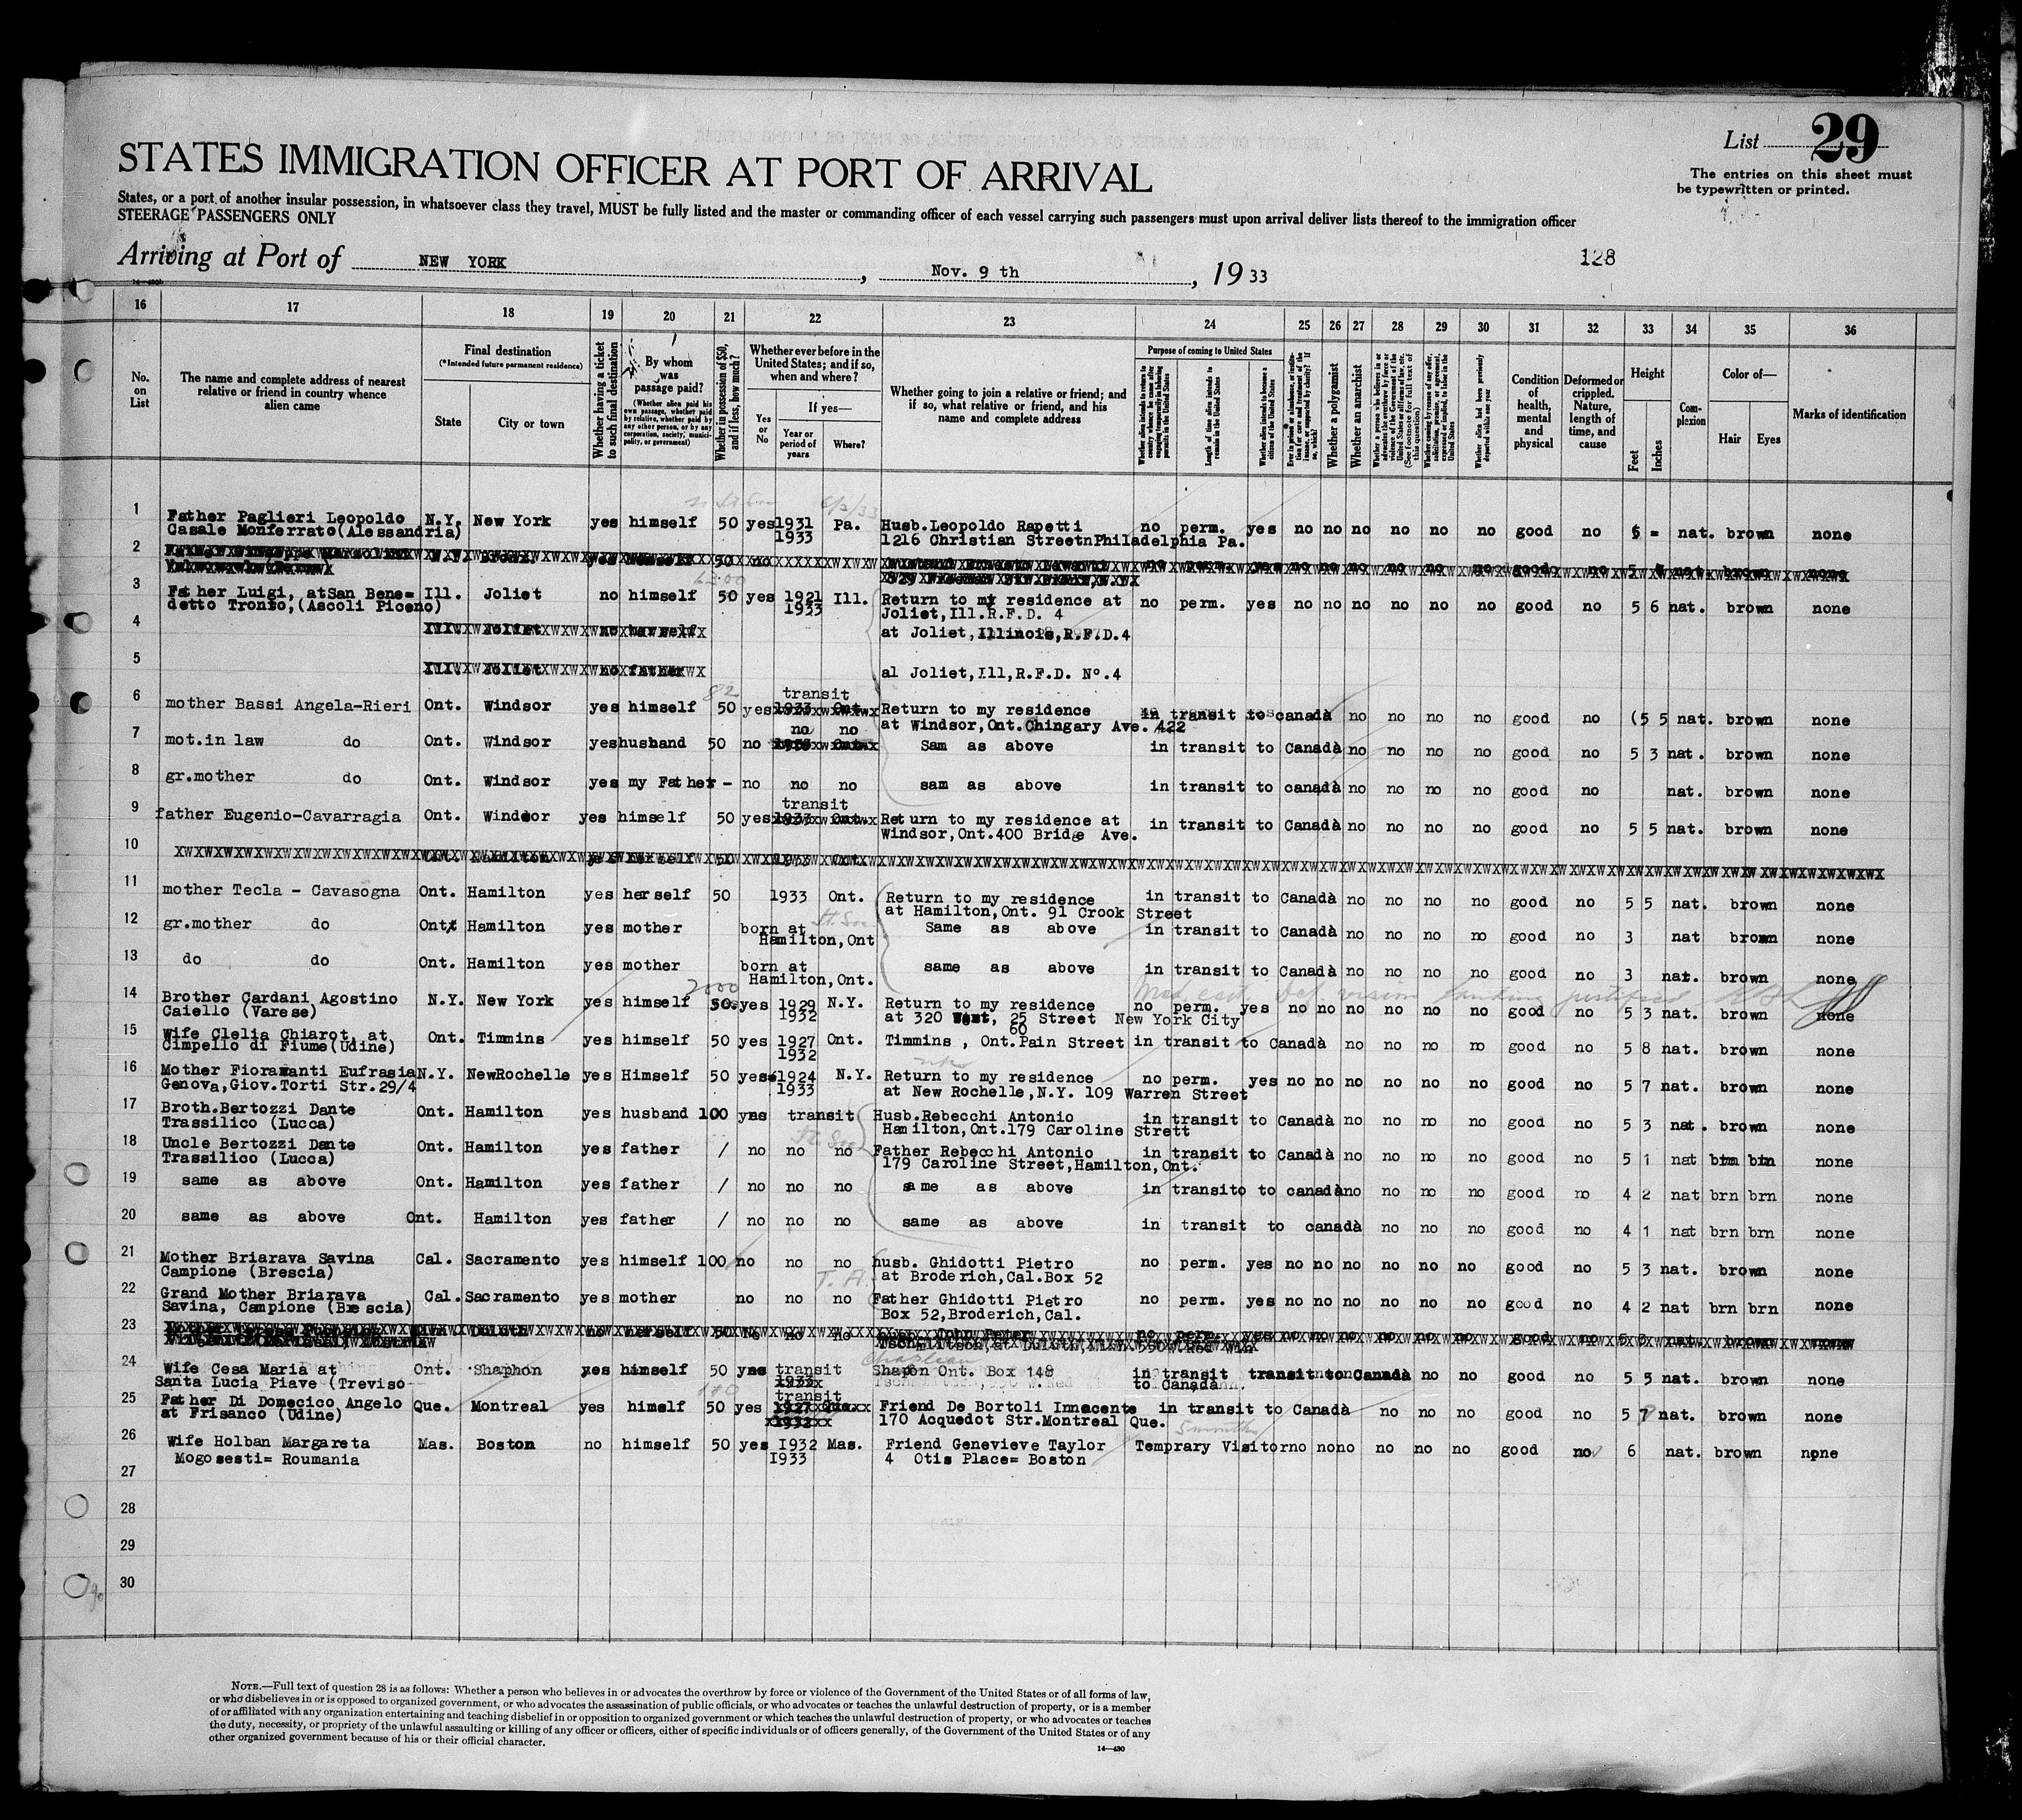 List 29
The entries on this sheet must
be typewritten or printed.
STATES IMMIGRATION OFFICER AT PORT OF ARRIVAL
States, or a port of another insular possession, in whatsoever class they travel, MUST be fully listed and the master or commanding officer of each vessel carrying such passengers must upon arrival deliver lists thereof to the immigration officer
STEERAGE PASSENGERS ONLY
Arriving at Port of NEW YORK, Nov. 9 th, 19 33
128
16 17 18 19 20 21 22 23 24 25 26 27 28 29 30 31 32 33 34 35 36
No. on List
The name and complete address of nearest relative or friend in country whence alien came
Final destination
(*Intended future permanent residence)
State
City or town
Whether having a ticket to such final destination
By whom was passage paid?
(Whether alien paid his own passage, whether paid by relative, whether paid by any other person, or by any corporation, society, municipality, or government)
Whether in possession of $50, and if less, how much?
Whether ever before in the United States; and if so, when and where?
Yes or No
If yes—
Year or period of years
Where?
Whether going to join a relative or friend; and if so, what relative or friend, and his name and complete address
Purpose of coming to United States
Length of time alien intends to remain in the United States
Whether alien intends to become a citizen of the United States
Whether a polygamist
Whether an anarchist
Whether alien had been previously deported within one year
Condition of health, mental and physical
Deformed or crippled. Nature, length of time, and cause
Height
Feet
Inches
Complexion
Color of—
Hair
Eyes
Marks of identification
1 Father Paglieri Leopoldo N.Y. New York yes himself 50 yes 1931 Pa. Husb. Leopoldo Rapetti no perm. yes no no no no no no good no 5 = nat. brown none
Casale Monferrato(Alessandria) 1933 1216 Christian StreetnPhiladelphia Pa.
2
3 Father Luigi, atSan Bene= Ill. Joliet no himself 50 yes 1921 Ill. Return to my residence at no perm. yes no no no no no no good no 5 6 nat. brown none
detto Tronto,(Ascoli Piceno) 1933 Joliet,Ill.R.F.D. 4
4 at Joliet,Illinois,R.F.D.4
5 al Joliet,Ill,R.F.D. Nº.4
6 mother Bassi Angela-Rieri Ont. Windsor yes himself 50 yes transit Return to my residence in transit to canadà no no no no good no (5 5 nat. brown none
at Windsor,Ont.Chingary Ave. 422
7 mot.in law do Ont. Windsor yes husband 50 no no no Sam as above in transit to Canadà no no no no good no 5 3 nat. brown none
8 gr.mother do Ont. Windsor yes my Father - no no no sam as above in transit to canadà no no no no good no nat. brown none
9 father Eugenio-Cavarragia Ont. Windsor yes himself 50 yes transit Return to my residence at in transit to Canadà no no no no good no 5 5 nat. brown none
Windsor,Ont.400 Bridge Ave.
10
11 mother Tecla - Cavasogna Ont. Hamilton yes herself 50 1933 Ont. Return to my residence in transit to Canadà no no no no good no 5 5 nat. brown none
at Hamilton,Ont. 91 Crook Street
12 gr.mother do Ont Hamilton yes mother born at Same as above in transit to Canadà no no no no good no 3 nat brown none
Hamilton,Ont
13 do do Ont. Hamilton yes mother born at same as above in transit to Canadà no no no no good no 3 nat. brown none
Hamilton,Ont.
2000
Med. cert. Def vision landing justified
14 Brother Cardani Agostino N.Y. New York yes himself 50 yes 1929 N.Y. Return to my residence no perm. yes no no no no no no good no 5 3 nat. brown none
Caiello (Varese) 1932 at 320 West, 25 Street New York City
60
15 Wife Clelia Chiarot, at Ont. Timmins yes himself 50 yes 1927 Ont. Timmins , Ont.Pain Street in transit to Canadà no no no no good no 5 8 nat. brown none
Cimpello di Fiume(Udine) 1932
16 Mother Fioravanti Eufrasia N.Y. NewRochelle yes Himself 50 yes 1924 N.Y. Return to my residence no perm. yes no no no no no no good no 5 7 nat. brown none
Genova,Giov.Torti Str.29/4 1933 at New Rochelle,N.Y. 109 Warren Street
17 Broth.Bertozzi Dante Ont. Hamilton yes husband 100 yes transit Husb.Rebecchi Antonio in transit to Canadà no no no no good no 5 3 nat. brown none
Trassilico (Lucca) Hamilton,Ont.179 Caroline Strett
18 Uncle Bertozzi Dante Ont. Hamilton yes father / no no no Father Rebecchi Antonio in transit to Canadà no no no no good no 5 1 nat brn brn none
Trassilico (Lucca) 179 Caroline Street,Hamilton,Ont.
19 same as above Ont. Hamilton yes father / no no no same as above in transito to canadà no no no no good no 4 2 nat brn brn none
20 same as above Ont. Hamilton yes father / no no no same as above in transit to canadà no no no good no 4 1 nat brn brn none
21 Mother Briarava Savina Cal. Sacramento yes himself 100 no no no husb. Ghidotti Pietro no perm. yes no no no no no no good no 5 3 nat. brown none
Campione (Brescia) at Broderich,Cal.Box 52
22 Grand Mother Briarava Cal. Sacramento yes mother no no no Father Ghidotti Pietro no perm. yes no no no no no no good no 4 2 nat brn brn none
Savina, Campione (Brescia) Box 52,Broderich,Cal.
23
24 Wife Cesa Maria at Ont. Shaphon yes himself 50 yes transit Shapen Ont. Box 148 in transit transit to Canadà no no no good no 5 5 nat. brown none
Santa Lucia Piave (Treviso 1933 to Canadà
25 Father Di Domecico Angelo Que. Montreal yes himself 50 yes transit Friend De Bortoli Innacente in transit to Canadà no no no good no 5 7 nat. brown none
at Frisanco (Udine) 170 Acquedot Str.Montreal Que.
5 months
26 Wife Holban Margareta Mas. Boston no himself 50 yes 1932 Mas. Friend Genevieve Taylor Temprary Visitor no no no no no no good no 6 nat. brown none
Mogosesti= Roumania 1933 4 Otis Place= Boston
27
28
29
30
NOTE.—Full text of question 28 is as follows: Whether a person who believes in or advocates the overthrow by force or violence of the Government of the United States or of all forms of law,
or who disbelieves in or is opposed to organized government, or who advocates the assassination of public officials, or who advocates or teaches the unlawful destruction of property, or is a member
of or affiliated with any organization entertaining and teaching disbelief in or opposition to organized government or which teaches the unlawful destruction of property, or who advocates or teaches
the duty, necessity, or propriety of the unlawful assaulting or killing of any officer or officers, either of specific individuals or of officers generally, of the Government of the United States or of any
other organized government because of his or their official character.
14—430